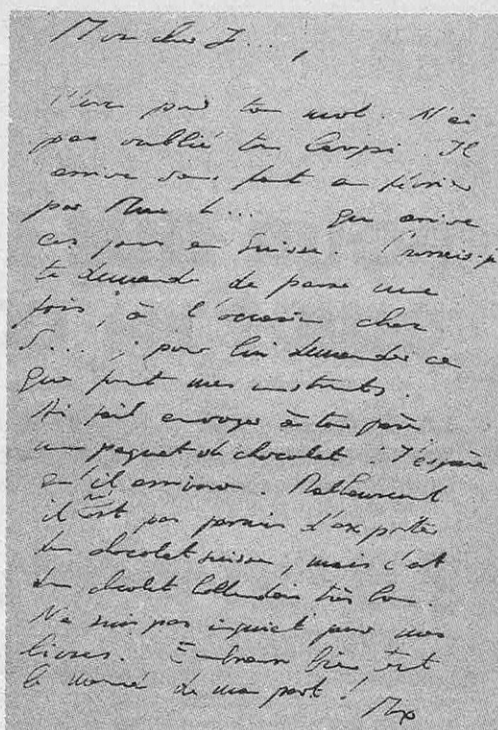 Mon cher J...,
Merci pour ton mot. N'ai
pas oublié ton Carpi. Il
arrive sans faute en février
par Mme L... qui arrive
ces jours en Suisse. Pourrais-je
te demander de passer une
fois, à l'occasion chez
S...; pour lui demander ce
que font mes instruments.
Ai fait envoyer à ton père
un paquet de chocolat: J'espère
qu'il arrivera. Malheureusement
il n'est pas permis d'exporter
du chocolat suisse, mais c'est
du chocolat hollandais très bon.
Ne suis pas inquiet pour mes
livres. Embrasse bien tout
le monde de ma part!
Max